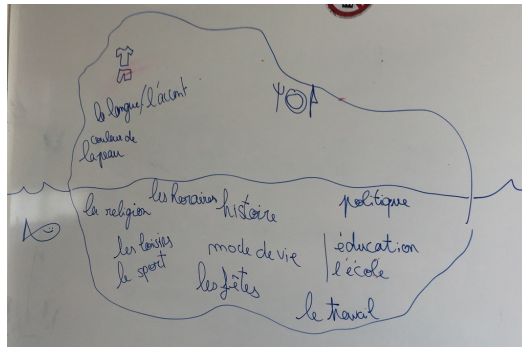 la langue/l'accent
couleur de
la peau
la religion
les horaires
histoire
politique
les loisirs
le sport
mode de vie
éducation
l'école
les fêtes
le travail